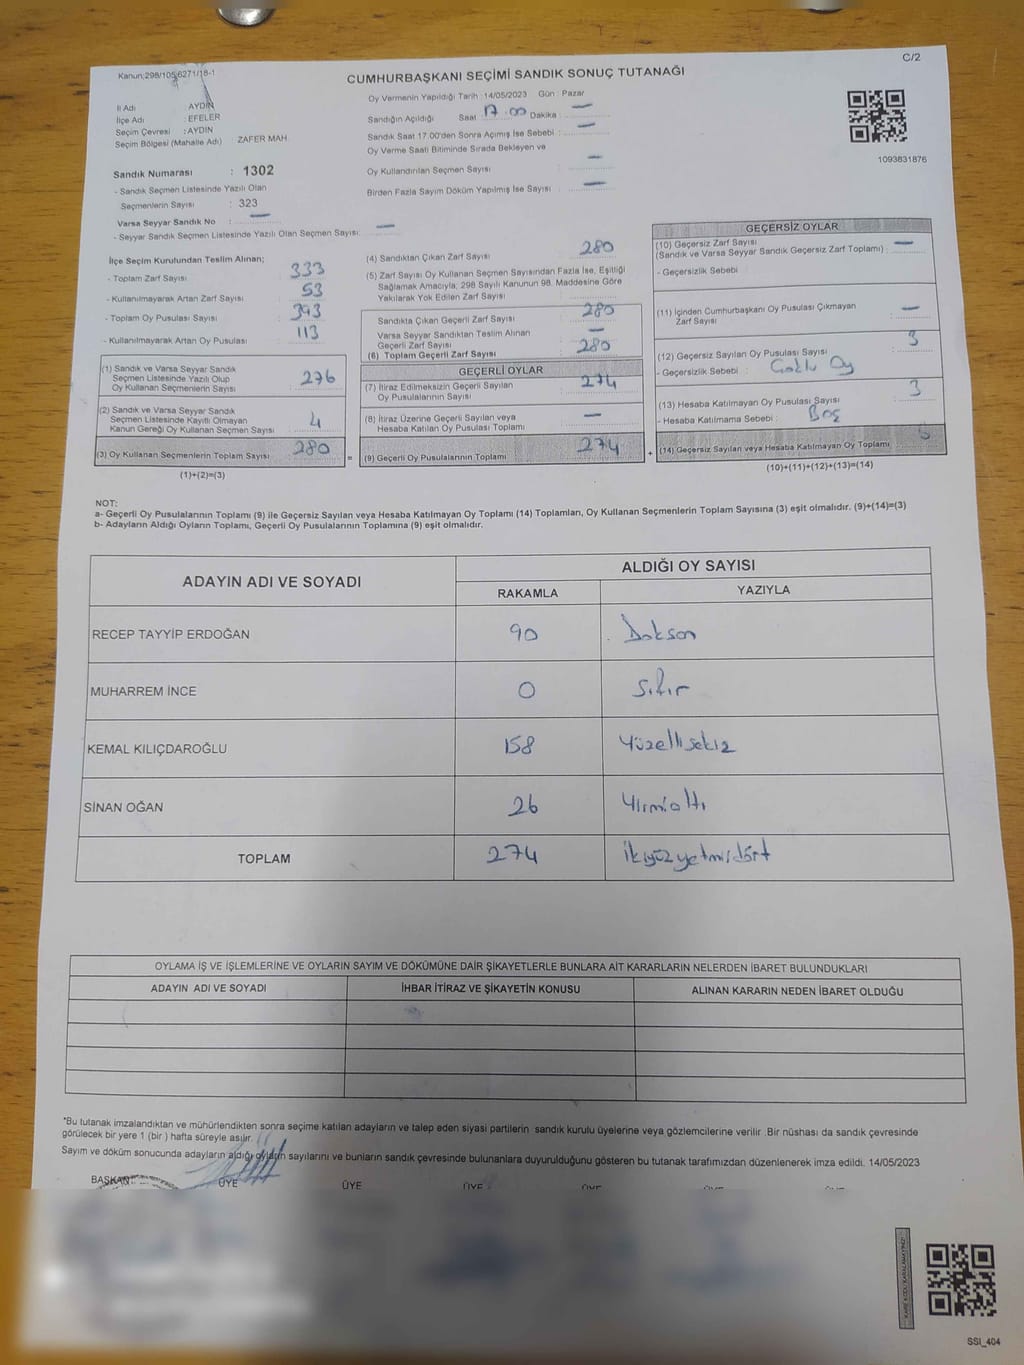 C/2
Kanun;298/105,6271/18-1
CUMHURBAŞKANI SEÇİMİ SANDIK SONUÇ TUTANAĞI
İl Adı : AYDIN
İlçe Adı : EFELER
Seçim Çevresi : AYDIN
Seçim Bölgesi (Mahalle Adı) ZAFER MAH.
Sandık Numarası : 1302
- Sandık Seçmen Listesinde Yazılı Olan
Seçmenlerin Sayısı : 323
Varsa Seyyar Sandık No : —
- Seyyar Sandık Seçmen Listesinde Yazılı Olan Seçmen Sayısı: —
Oy Vermenin Yapıldığı Tarih :14/05/2023 Gün : Pazar
Sandığın Açıldığı Saat 17.00 Dakika : —
Sandık Saat 17.00'den Sonra Açımış İse Sebebi : —
Oy Verme Saati Bitiminde Sırada Bekleyen ve
Oy Kullandırılan Seçmen Sayısı : —
Birden Fazla Sayım Döküm Yapılmış İse Sayısı : —
1093831876
İlçe Seçim Kurulundan Teslim Alınan;
- Toplam Zarf Sayısı : 333
- Kullanılmayarak Artan Zarf Sayısı : 53
- Toplam Oy Pusulası Sayısı : 393
- Kullanılmayarak Artan Oy Pusulası : 113
(1) Sandık ve Varsa Seyyar Sandık
Seçmen Listesinde Yazılı Olup
Oy Kullanan Seçmenlerin Sayısı : 276
(2) Sandık ve Varsa Seyyar Sandık
Seçmen Listesinde Kayıtlı Olmayan
Kanun Gereği Oy Kullanan Seçmen Sayısı : 4
(3) Oy Kullanan Seçmenlerin Toplam Sayısı : 280
(1)+(2)=(3)
(4) Sandıktan Çıkan Zarf Sayısı : 280
(5) Zarf Sayısı Oy Kullanan Seçmen Sayısından Fazla İse, Eşitliği
Sağlamak Amacıyla; 298 Sayılı Kanunun 98. Maddesine Göre
Yakılarak Yok Edilen Zarf Sayısı : —
Sandıkta Çıkan Geçerli Zarf Sayısı : 280
Varsa Seyyar Sandıktan Teslim Alınan
Geçerli Zarf Sayısı : —
(6) Toplam Geçerli Zarf Sayısı : 280
GEÇERLİ OYLAR
(7) İtiraz Edilmeksizin Geçerli Sayılan
Oy Pusulalarının Sayısı : 274
(8) İtiraz Üzerine Geçerli Sayılan veya
Hesaba Katılan Oy Pusulası Toplamı : —
(9) Geçerli Oy Pusulalarının Toplamı : 274
GEÇERSİZ OYLAR
(10) Geçersiz Zarf Sayısı
(Sandık ve Varsa Seyyar Sandık Geçersiz Zarf Toplamı) : —
- Geçersizlik Sebebi :
(11) İçinden Cumhurbaşkanı Oy Pusulası Çıkmayan
Zarf Sayısı : —
(12) Geçersiz Sayılan Oy Pusulası Sayısı : 3
- Geçersizlik Sebebi : Oy
(13) Hesaba Katılmayan Oy Pusulası Sayısı : 3
- Hesaba Katılmama Sebebi : Boş
(14) Geçersiz Sayılan veya Hesaba Katılmayan Oy Toplamı : 6
(10)+(11)+(12)+(13)=(14)
NOT:
a- Geçerli Oy Pusulalarının Toplamı (9) ile Geçersiz Sayılan veya Hesaba Katılmayan Oy Toplamı (14) Toplamları, Oy Kullanan Seçmenlerin Toplam Sayısına (3) eşit olmalıdır. (9)+(14)=(3)
b- Adayların Aldığı Oyların Toplamı, Geçerli Oy Pusulalarının Toplamına (9) eşit olmalıdır.
ADAYIN ADI VE SOYADI ALDIĞI OY SAYISI
RAKAMLA YAZIYLA
RECEP TAYYİP ERDOĞAN 90 Doksan
MUHARREM İNCE 0 Sıfır
KEMAL KILIÇDAROĞLU 158 Yüzellisekiz
SİNAN OĞAN 26 Yirmialtı
TOPLAM 274 ikiyüzyetmişdört
OYLAMA İŞ VE İŞLEMLERİNE VE OYLARIN SAYIM VE DÖKÜMÜNE DAİR ŞİKAYETLERLE BUNLARA AİT KARARLARIN NELERDEN İBARET BULUNDUKLARI
ADAYIN ADI VE SOYADI İHBAR İTİRAZ VE ŞİKAYETİN KONUSU ALINAN KARARIN NEDEN İBARET OLDUĞU
*Bu tutanak imzalandıktan ve mühürlendikten sonra seçime katılan adayların ve talep eden siyasi partilerin sandık kurulu üyelerine veya gözlemcilerine verilir .Bir nüshası da sandık çevresinde
görülecek bir yere 1 (bir ) hafta süreyle asılır.
Sayım ve döküm sonucunda adayların aldığı oyların sayılarını ve bunların sandık çevresinde bulunanlara duyurulduğunu gösteren bu tutanak tarafımızdan düzenlenerek imza edildi. 14/05/2023
BAŞKAN ÜYE ÜYE ÜYE
KARE KODU KARALAMAYINIZ!
SSI_404